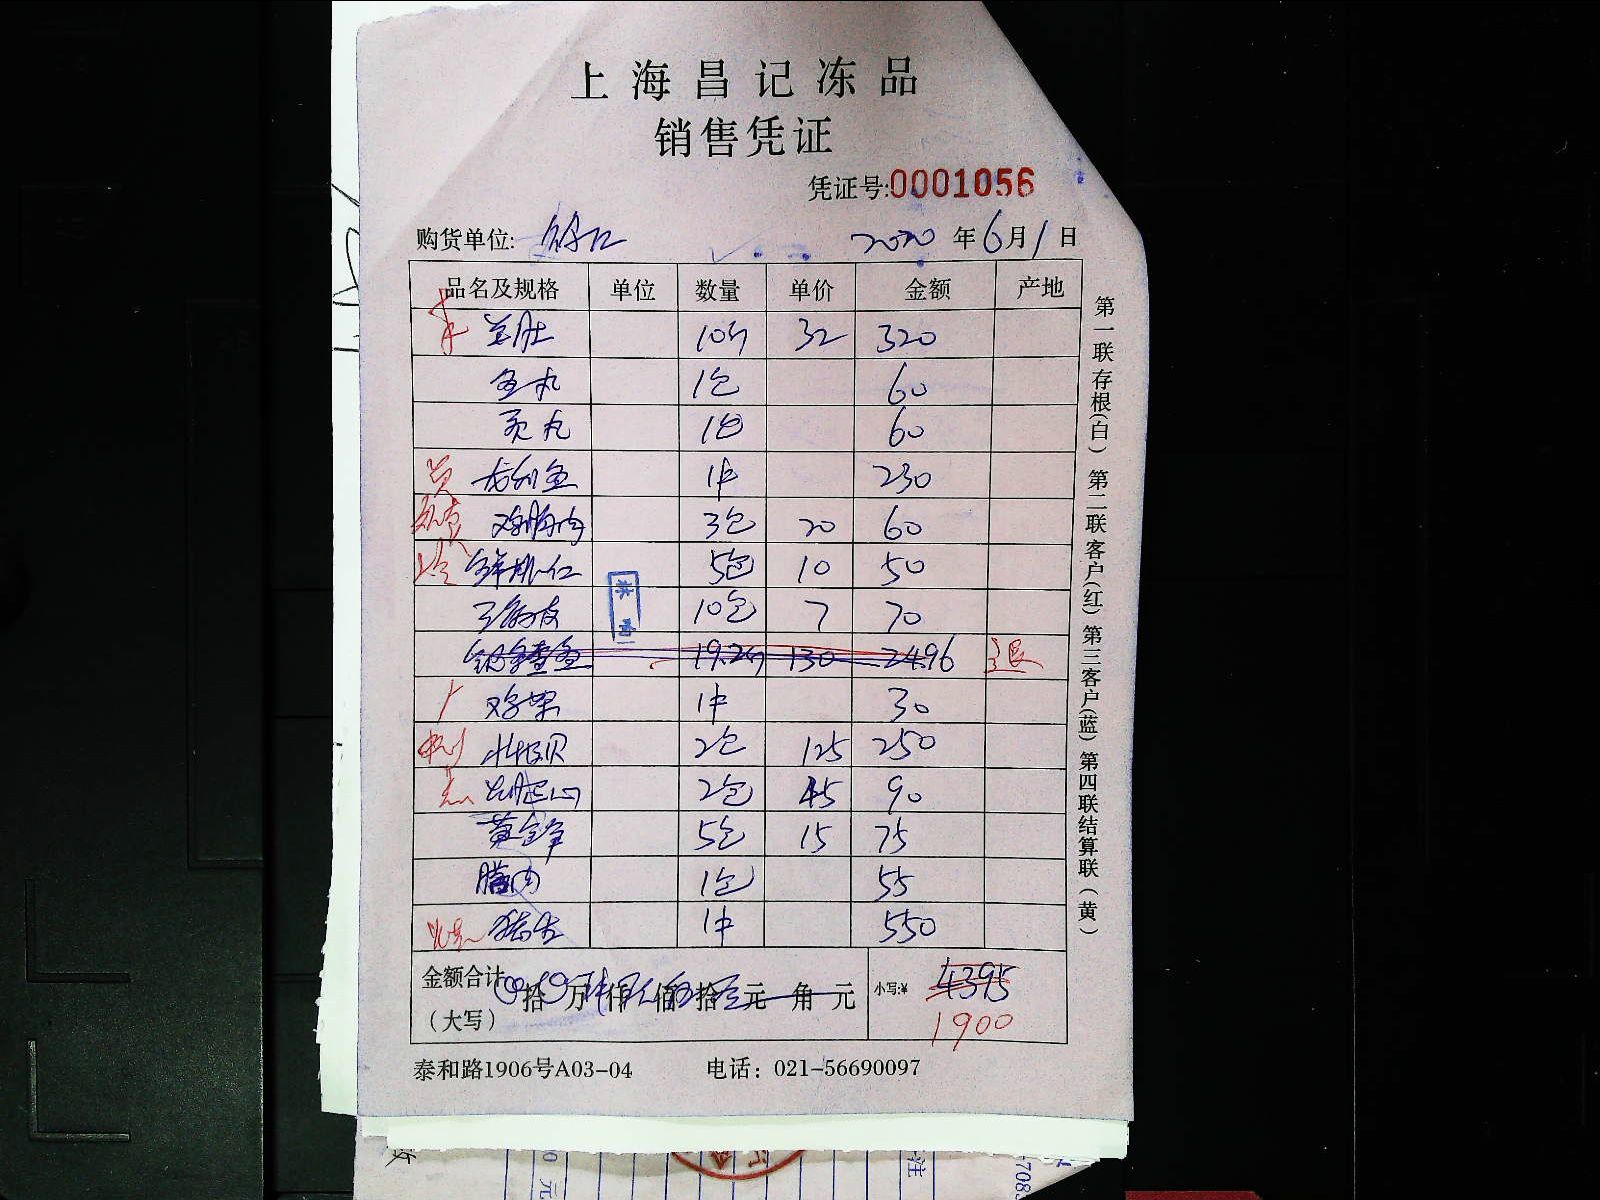 上海昌记冻品
销售凭证
凭证号:0001056
购货单位: 2020 年 6 月 1 日
品名及规格 单位 数量 单价 金额 产地
10斤 32 320
鱼丸 1包 60
贡丸 1包 60
龙利鱼 1件 230
鸡胸肉 3包 20 60
鲜桃仁 5包 10 50
10包 7 70
19.2斤 130 2496 退
1件 30
2包 125 250
2包 45 90
黄金笋 5包 15 75
腊肉 1包 55
1件 550
金额合计 拾 万 仟 佰 拾 元 角 元 小写:¥ 4395
(大写) 1900
泰和路1906号A03-04 电话：021-56690097
第一联存根(白) 第二联客户(红) 第三客户(蓝) 第四联结算联(黄)